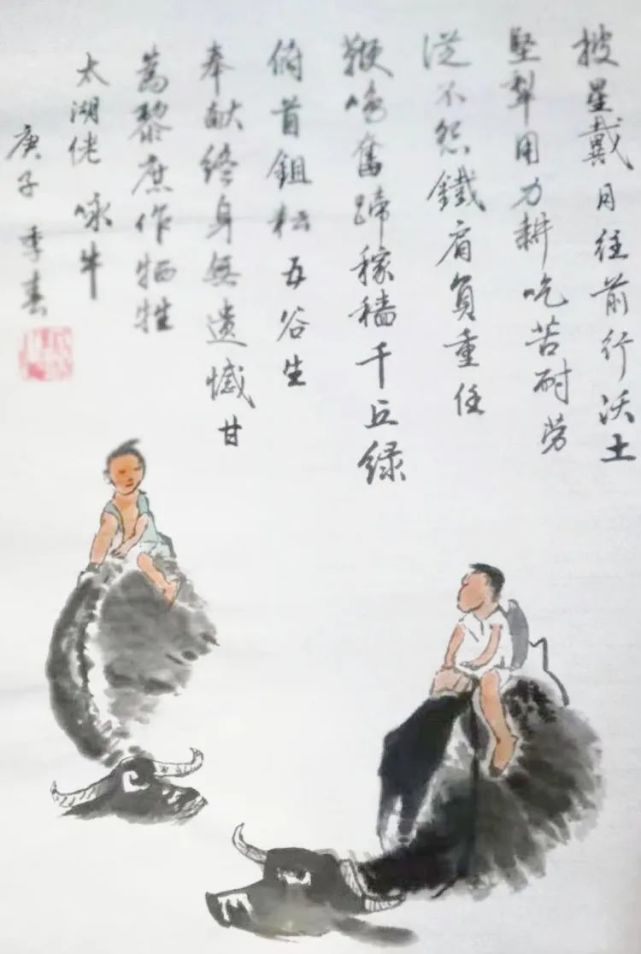 披星戴月往前行沃土
坚犁用力耕吃苦耐劳
从不怨鐵肩負重任
鞭鳴奮蹄稼穡千丘绿
俯首鉏耘五谷生
奉献终身無遗憾甘
為黎庶作牺牲
太湖佬 咏牛
庚子季春